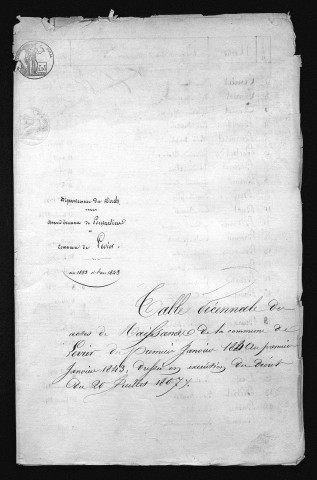 Département du Doubs
Arrondissement de Pontarlier
Commune de Levier.
Table décennale des
actes de Naissances de la commune de
Levier du premier Janvier 18 au premier
Janvier 1843, dressée en exécution du décret
du 20 Juillet 1807.